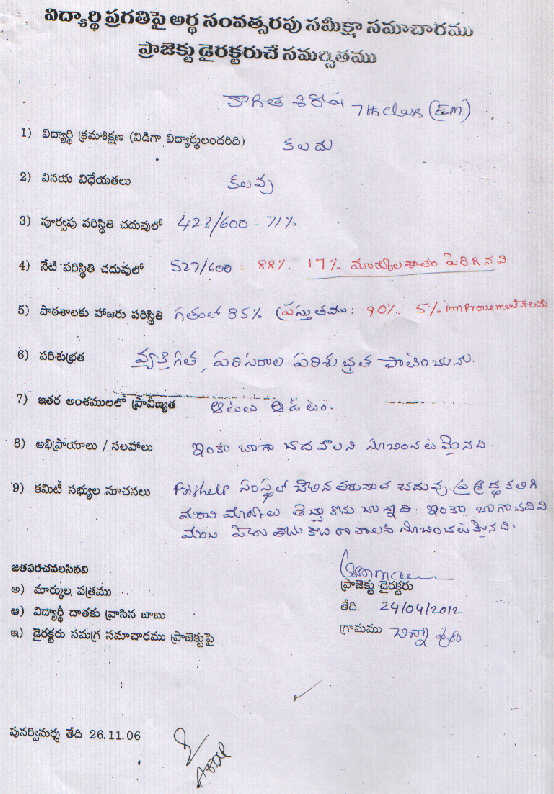 విద్యార్థి ప్రగతిపై అర్థ సంవత్సరపు సమీక్షా సమాచారము
ప్రాజెక్టు డైరక్టరుచే సమర్పితము
కాగిత శిరీష 7th class (EM)
1) విద్యార్థి క్రమశిక్షణ (విడిగా విద్యార్థులందరిది) కలదు
2) వినయ విధేయతలు కలవు
3) పూర్వపు పరిస్థితి చదువులో 422/600 - 71%
4) నేటి పరిస్థితి చదువులో 527/600 - 88%. 17% మార్కుల శాతం పెరిగినవి
5) పాఠశాలకు హాజరు పరిస్థితి గతంలో 85% ప్రస్తుతము: 90%. 5% Improvement కలదు
6) పరిశుభ్రత వ్యక్తిగత, పరిసరాల పరిశుభ్రత పాటించును.
7) ఇతర అంశములలో ప్రావీణ్యత ఆటలు ఆడటం.
8) అభిప్రాయాలు / సలహాలు ఇంకా బాగా చదవాలని సూచించటమైనది
9) కమిటీ సభ్యుల సూచనలు సంస్థలో చేరిన తరువాత చదువు పై శ్రద్ధ కలిగి
మంచి మార్కులు ఇంకా బాగా చదివి
మంచి పేరు రావాలని సూచించటమైనది.
జతపరచవలసినవి
అ) మార్కుల పత్రము
ప్రాజెక్టు డైరక్టరు
ఆ) విద్యార్థి దాతకు వ్రాసిన జాబు
తేది 24/04/2012
ఇ) డైరక్టరు సమగ్ర సమాచారము ప్రాజెక్టుపై
గ్రామము
పునర్విమర్శ తేది 26.11.06